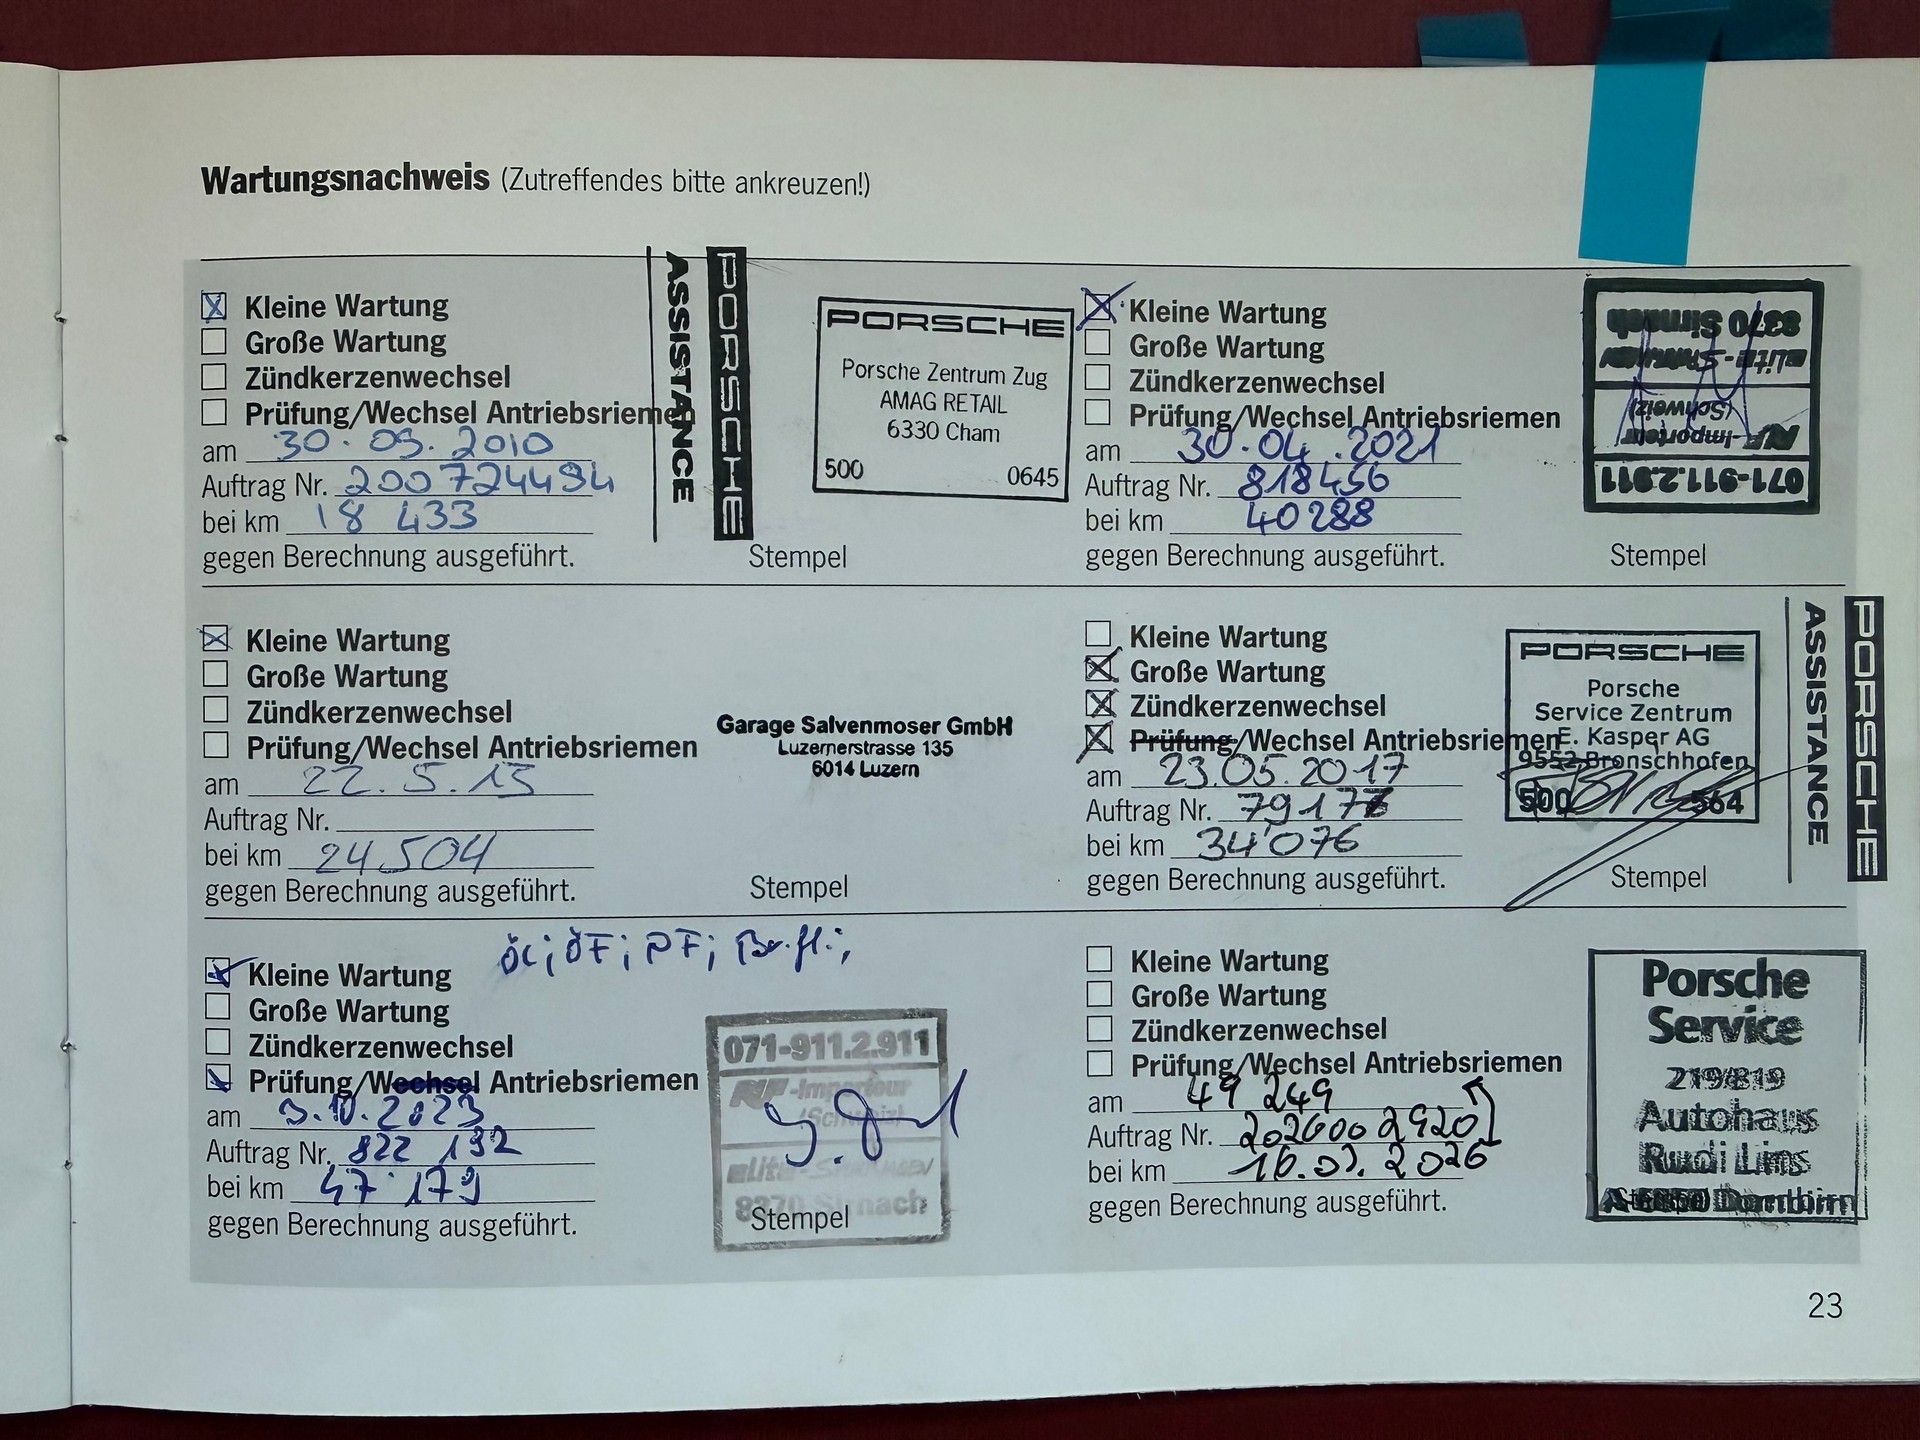 Wartungsnachweis (Zutreffendes bitte ankreuzen!)
Kleine Wartung
Große Wartung
Zündkerzenwechsel
Prüfung/Wechsel Antriebsriemen
am 30.09.2010
Auftrag Nr. 200724494
bei km 18 433
gegen Berechnung ausgeführt.
PORSCHE
ASSISTANCE
PORSCHE
Porsche Zentrum Zug
AMAG RETAIL
6330 Cham
500 0645
Stempel
Kleine Wartung
Große Wartung
Zündkerzenwechsel
Prüfung/Wechsel Antriebsriemen
am 30.04.2021
Auftrag Nr. 818456
bei km 40288
gegen Berechnung ausgeführt.
071-911.2.911
-Importeur
(Schweiz)
8370 Sirnach
Stempel
Kleine Wartung
Große Wartung
Zündkerzenwechsel
Prüfung/Wechsel Antriebsriemen
am 22.5.15
Auftrag Nr.
bei km 24.504
gegen Berechnung ausgeführt.
Garage Salvenmoser GmbH
Luzernerstrasse 135
6014 Luzern
Stempel
Kleine Wartung
Große Wartung
Zündkerzenwechsel
Prüfung/Wechsel Antriebsriemen
am 23.05.2017
Auftrag Nr.
bei km 34'076
gegen Berechnung ausgeführt.
PORSCHE
Porsche
Service Zentrum
E. Kasper AG
9552 Bronschhofen
500 564
PORSCHE
ASSISTANCE
Stempel
Kleine Wartung
Große Wartung
Zündkerzenwechsel
Prüfung/Wechsel Antriebsriemen
am 3.10.2023
Auftrag Nr. 822 132
bei km 47'179
gegen Berechnung ausgeführt.
071-911.2.911
-Importeur
(Schweiz)
8370 Sirnach
Stempel
Kleine Wartung
Große Wartung
Zündkerzenwechsel
Prüfung/Wechsel Antriebsriemen
am 49 249
Auftrag Nr. 202600 2920
bei km 2026
gegen Berechnung ausgeführt.
Porsche
Service
219/819
Autohaus
Rudi Lins
Dornbirn
23